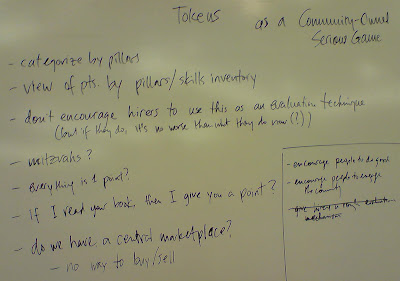 Tokens as a Community-Owned
Serious Game
- categorize by pillars
- view of pts. by pillars/skills inventory
- don't encourage hirers to use this as an evaluation technique
(but if they do, it's no worse than what they do now (?))
- mitzvahs?
- everything is 1 point?
- If I read your book, then I give you a point?
- do we have a central marketplace?
- no way to buy/sell
- encourage people to do good
- encourage people to engage
the community
- give hirers a evaluation
mechanism